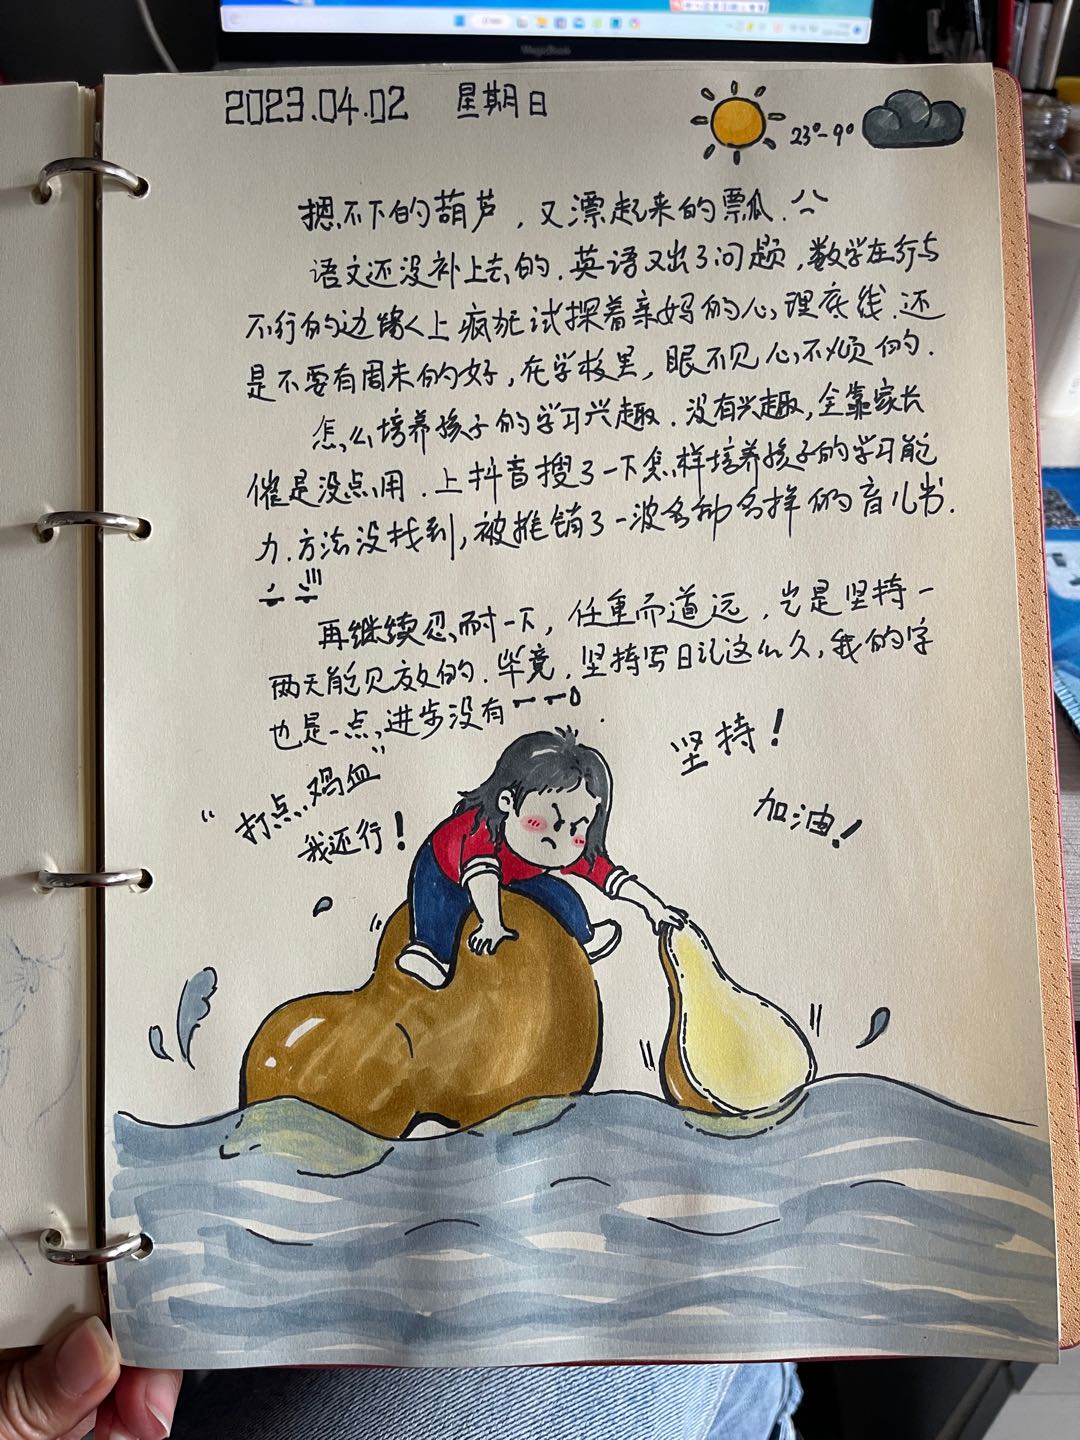 2023.04.02 星期日
23°-9°
摁不下的葫芦，又漂起来的瓢瓜.
语文还没补上去的.英语又出了问题，数学在行与
不行的边缘上疯狂试探着亲妈的心理底线.还
是不要有周末的好，在学校里，眼不见心不烦的.
怎么培养孩子的学习兴趣.没有兴趣，全靠家长
催是没点用.上抖音搜了一下怎样培养孩子的学习能
力.方法没找到，被推销了一波各种各样的育儿书.
再继续忍耐一下，任重而道远，岂是坚持一
两天能见效的.毕竟.坚持写日记这么久，我的字
也是一点进步没有
坚持！
“打点鸡血”
加油！
我还行！